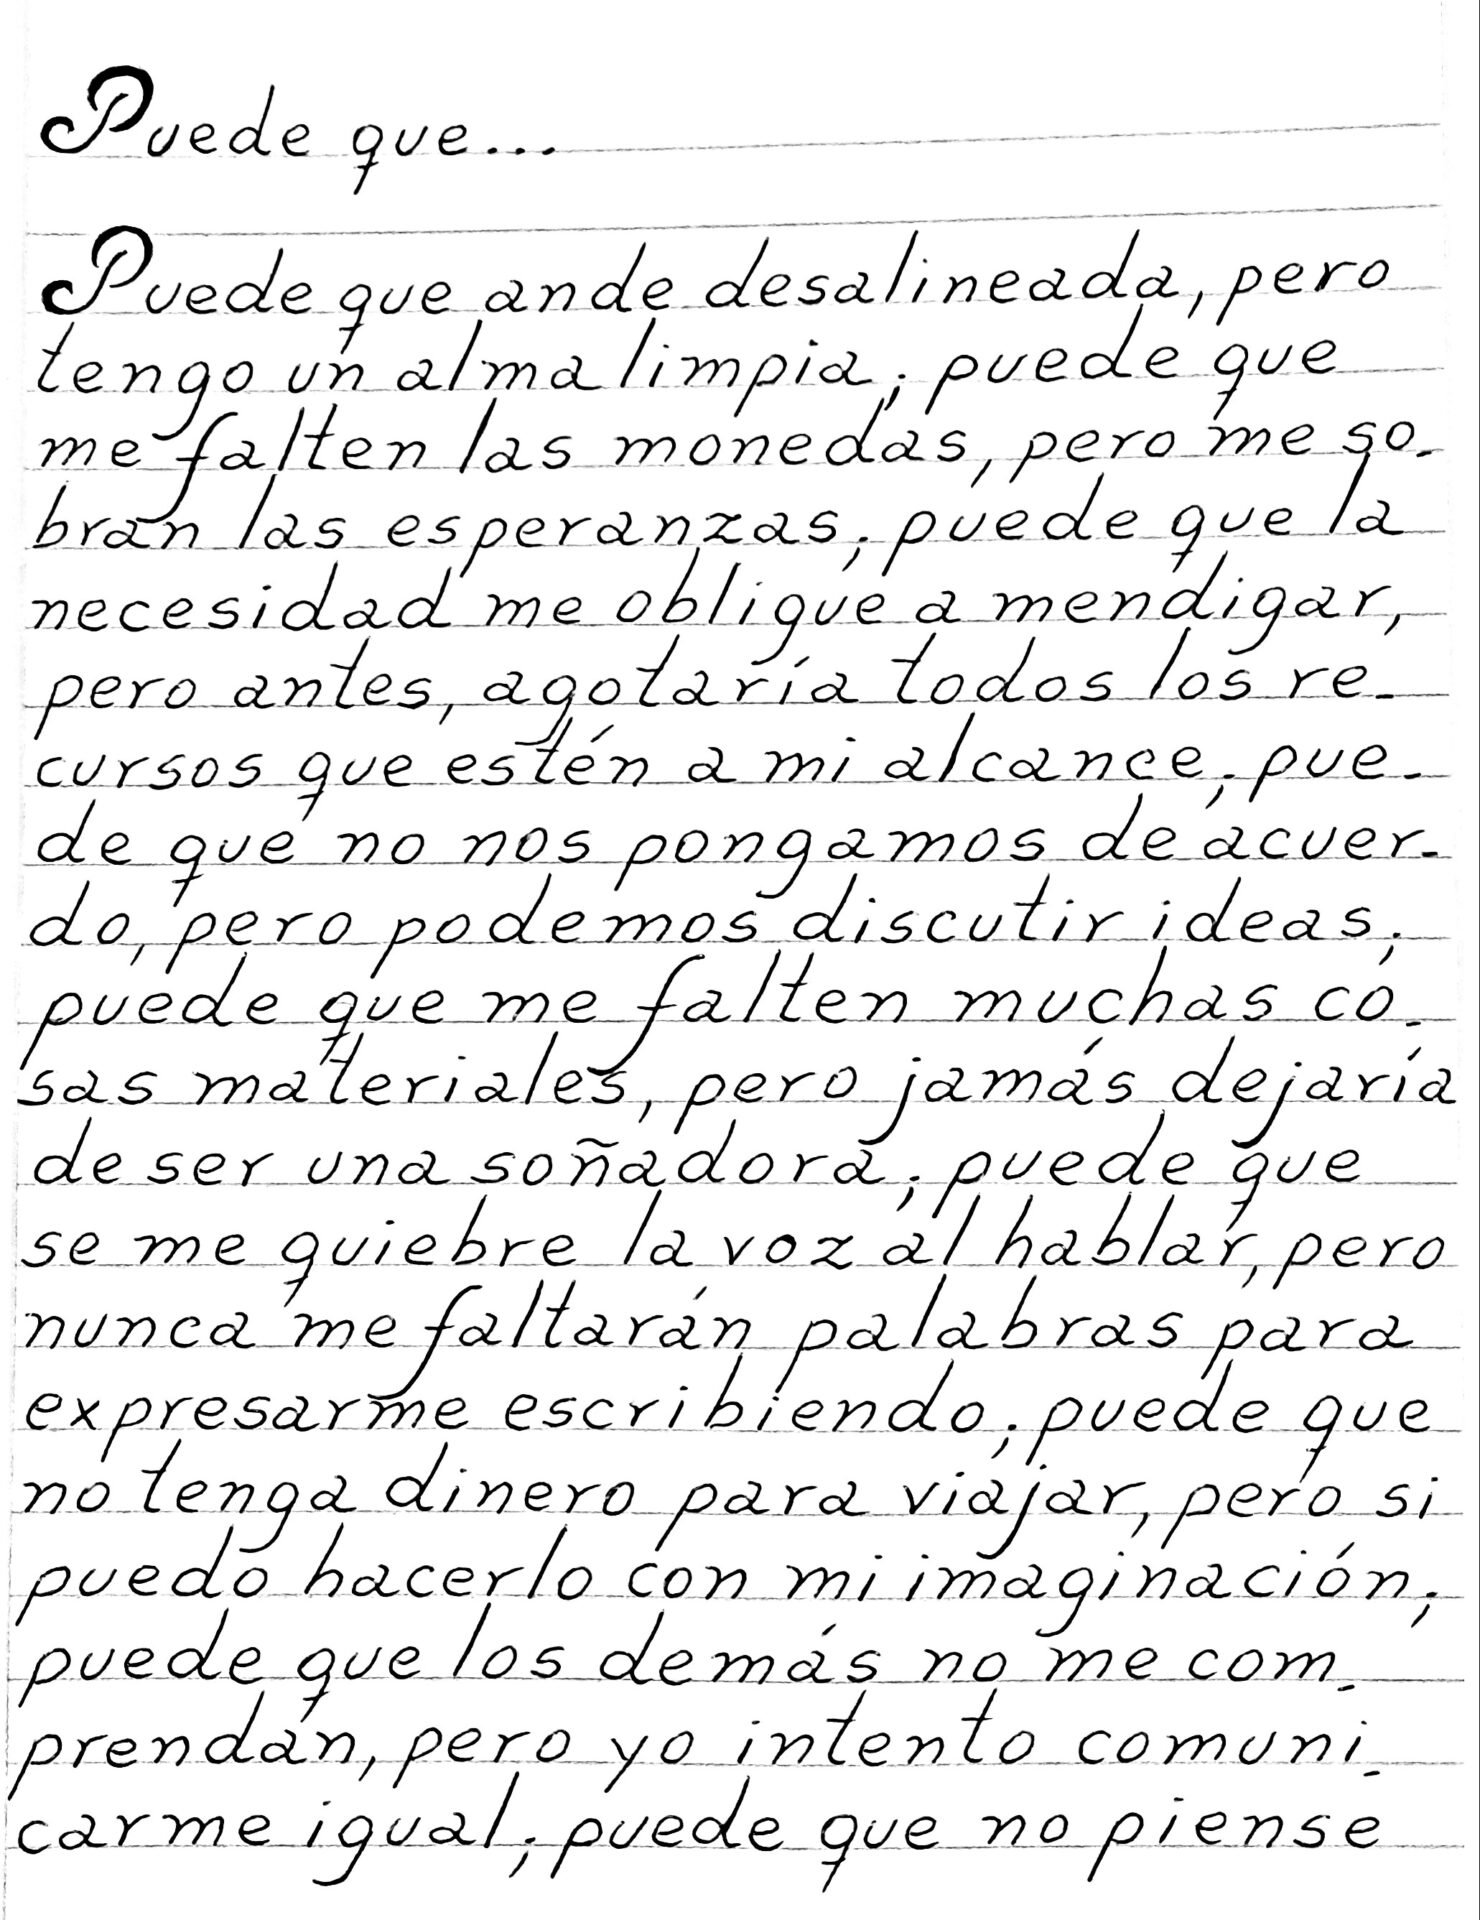 Puede que...
Puede que ande desalineada, pero
tengo un alma limpia; puede que
me falten las monedas, pero me so-
bran las esperanzas; puede que la
necesidad me obligue a mendigar,
pero antes, agotaría todos los re-
cursos que estén a mi alcance; pue-
de que no nos pongamos de acuer-
do, pero podemos discutir ideas;
puede que me falten muchas co-
sas materiales, pero jamás dejaría
de ser una soñadora; puede que
se me quiebre la voz al hablar, pero
nunca me faltarán palabras para
expresarme escribiendo; puede que
no tenga dinero para viajar, pero si
puedo hacerlo con mi imaginación;
puede que los demás no me com-
prendan, pero yo intento comuni-
carme igual; puede que no piense